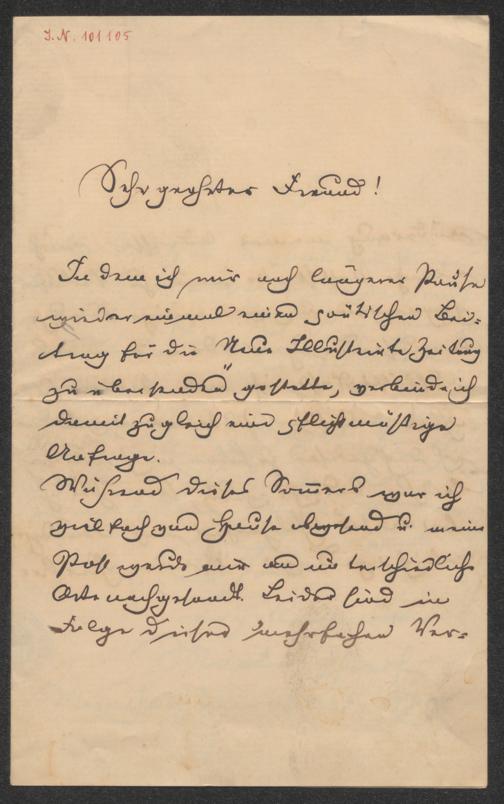 I.N. 101105
Sehr geehrter Freund!
In dem ich mir nach längerer Pause
wieder einmal einen poëtischen Bei-
trag für die Neue Illustrirte Zeitung
zu übersenden" gestatte, verbinde ich
damit zugleich eine pflichtmäßige
Anfrage.
Während dieses Sommers war ich
vielfach von Hause abwesend u. meine
Post wurde mir an unterschiedliche
Orte nachgesandt. Leider sind in
Folge dieses mehrfachen Ver-